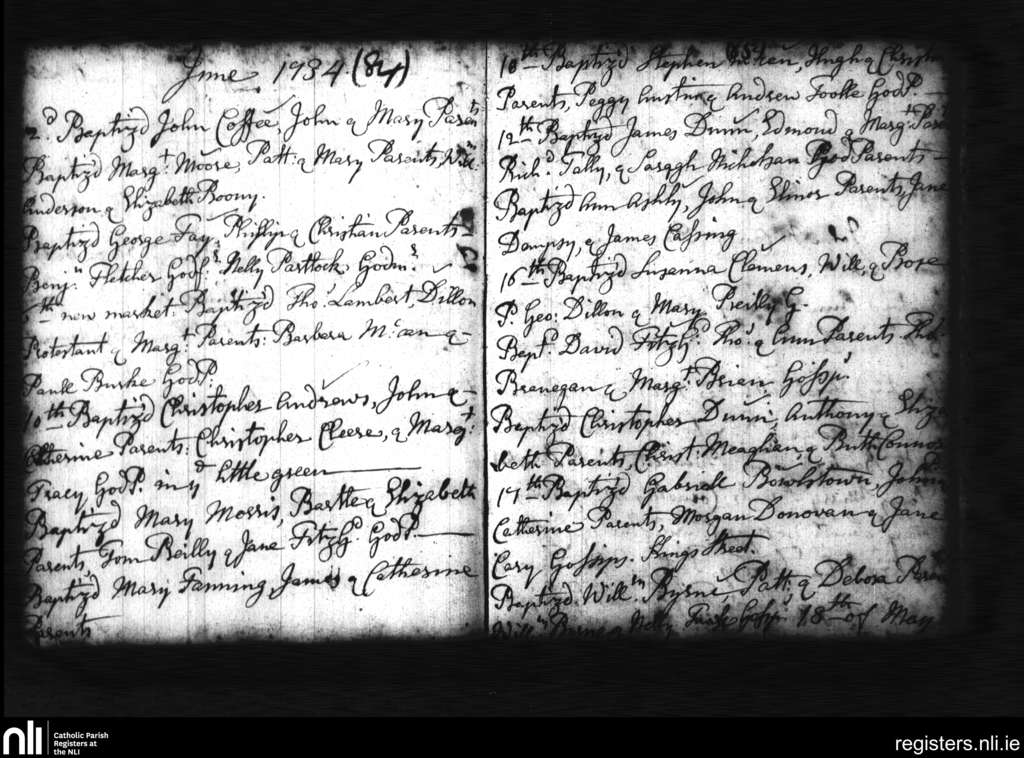 June 1734 (84)
2d. Baptiz'd John Coffee, John & Mary Parents
Baptiz'd Margt. Moore, Patt: & Mary Parents, Willm.
Anderson & Elizabeth Roony.
Baptiz'd George Fay, Phillip & Christian Parents
Benjn. Fletcher Godfr. Nelly Parttock, Godmr.
6th new market: Baptiz'd Thos. Lambert, Dillon
Protestant & Margt. Parents: Barbera
Paull Burke GodP.
10th Baptiz'd Christopher Andrews, John &
Catherine Parents: Christopher Cleere, & Margt:
Tracy GodP. in ye little green
Baptiz'd Mary Morris, Bartle & Elizabeth
Parents, Tom Reilly & Jane Fitzgd. GodP.
Baptiz'd Mary Fanning, James & Catherine
Parents
10th Baptiz'd Stephen Hugh & Christn
Parents, Peggy Austin & Andrew Toolle GodP
12th Baptiz'd James Dunn, Edmond & Margt. Pare
Richd. Tally, & Saragh Nicholsan GodParents
Baptiz'd Ann Ashly, John & Elinor Parents, Jane
Dampsy, & James Cassing
16th Baptiz'd Susanna Clemens, Will, & Rose
P. Geo: Dillon & Mary Preilly G.
Bapt. David Fitzgd. Thos. & Ann Parents Tho
Branegan & Margt. Brien Gossps.
Baptiz'd Christopher Dunn, Anthony & Eliza
beth Parents, Christ: Meaghan & Ruth Connor
17th Baptiz'd Gabriell Bowlstown, John &
Catherine Parents, Morgan Donovan & Jane
Cary Gossips. Kings Street.
Baptiz'd Willm. Byrne Patt: & Debora Paren
Willm. Byrne & Nelly Gossps. 18th of May
nli
Catholic Parish
Registers at
the NLI
registers.nli.ie